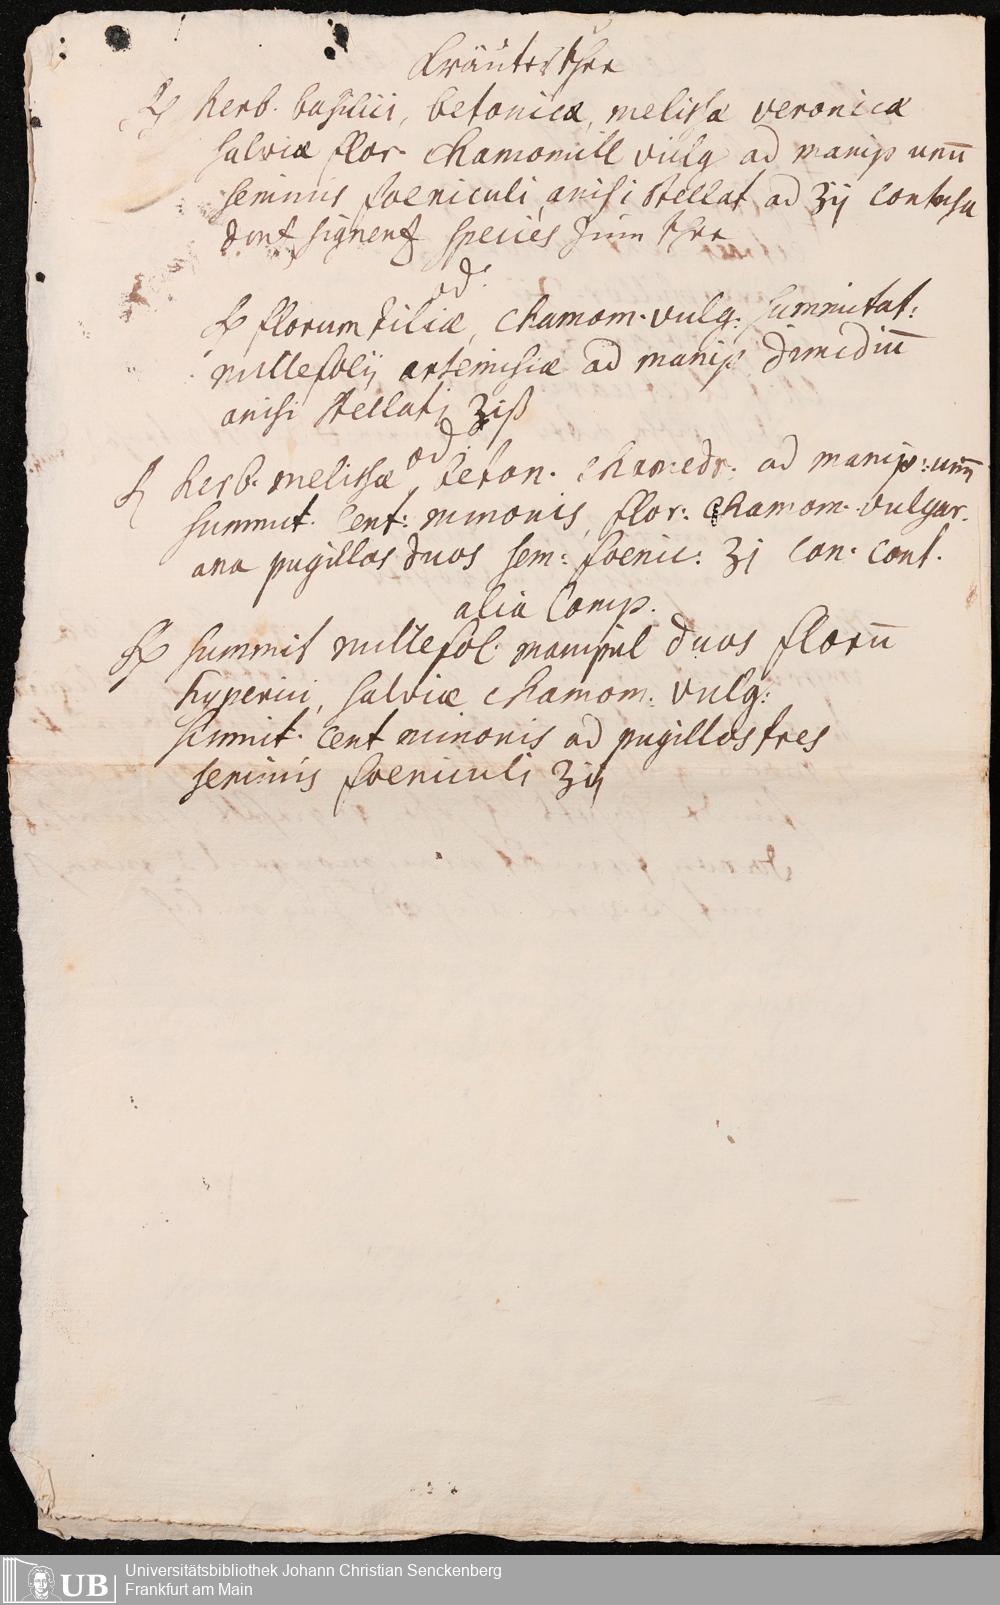 Kräuter thee
℞ herb. basilici, betonicæ, melissæ veronicæ
salviæ flor chamomill vulg ad manip unū
seminis foeniculi, anisi stellat ad ʒij contusa
dent signent species zum thee
od:
℞ florum tiliæ, chamom. vulg: summitat:
millefolij artemisiæ ad manip dimidiū
anisi stellati ʒiß
od:
℞ herb. melissæ, beton. chamedr: ad manip: unū
summit. Cent: minoris, flor: chamom. vulgar.
ana pugillos duos sem: foenic: ʒj con. cont.
alia Comp.
℞ summit millefol. manipul duos florū
hyperici, salviæ chamom: vulg:
summit. Cent minoris ad pugillos tres
seminis foeniculi ʒij
Universitätsbibliothek Johann Christian Senckenberg
Frankfurt am Main
UB